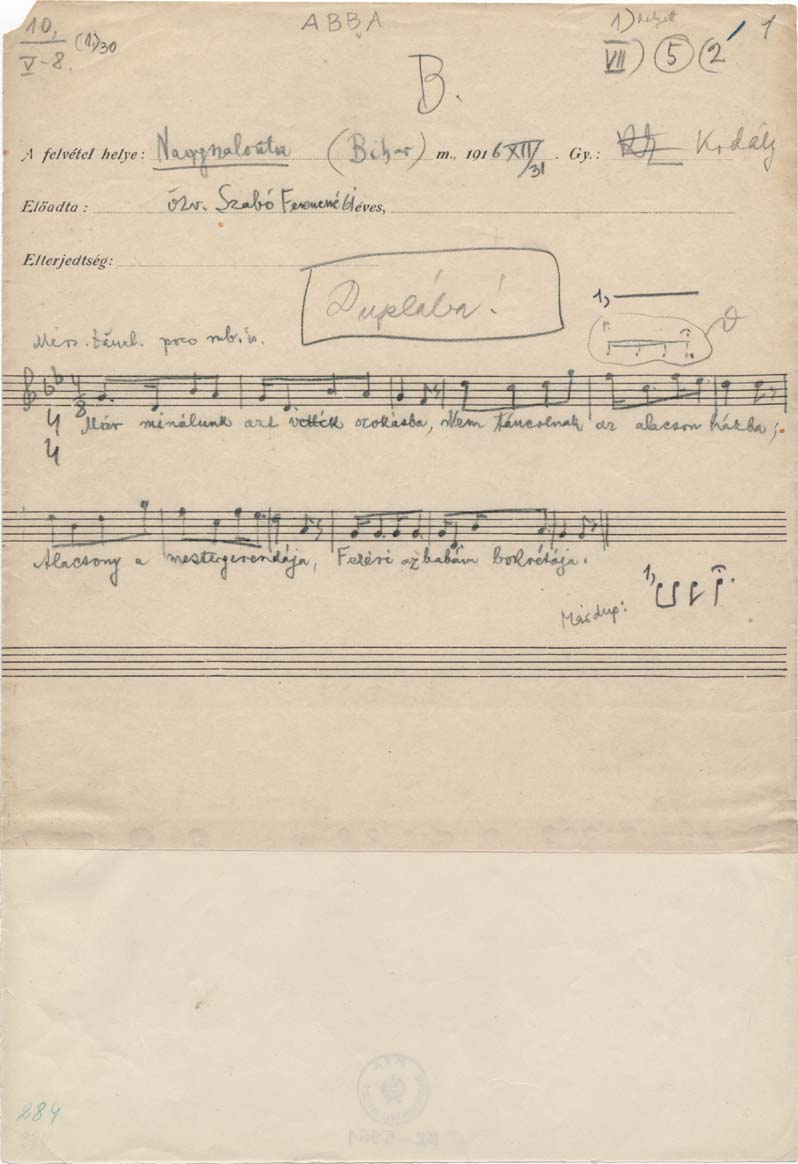 10,
V-8. (1,)30
ABBA
1) helyett
VII) 5 (2 1
B.
A felvétel helye: Nagyszalonta (Bihar) m., 1916 XII/31. Gy.: Kodály
Előadta: özv. Szabó Ferencné 61 éves,
Elterjedtség:
Duplába!
1,
Mérs. táncl. poco rub. is.
4/8
Már minálunk azt vették szokásba, Nem táncolnak az alacson házba;
Alacsony a mestergerendája, Feléri az babám bokrétája.
1,
Már dup:
284